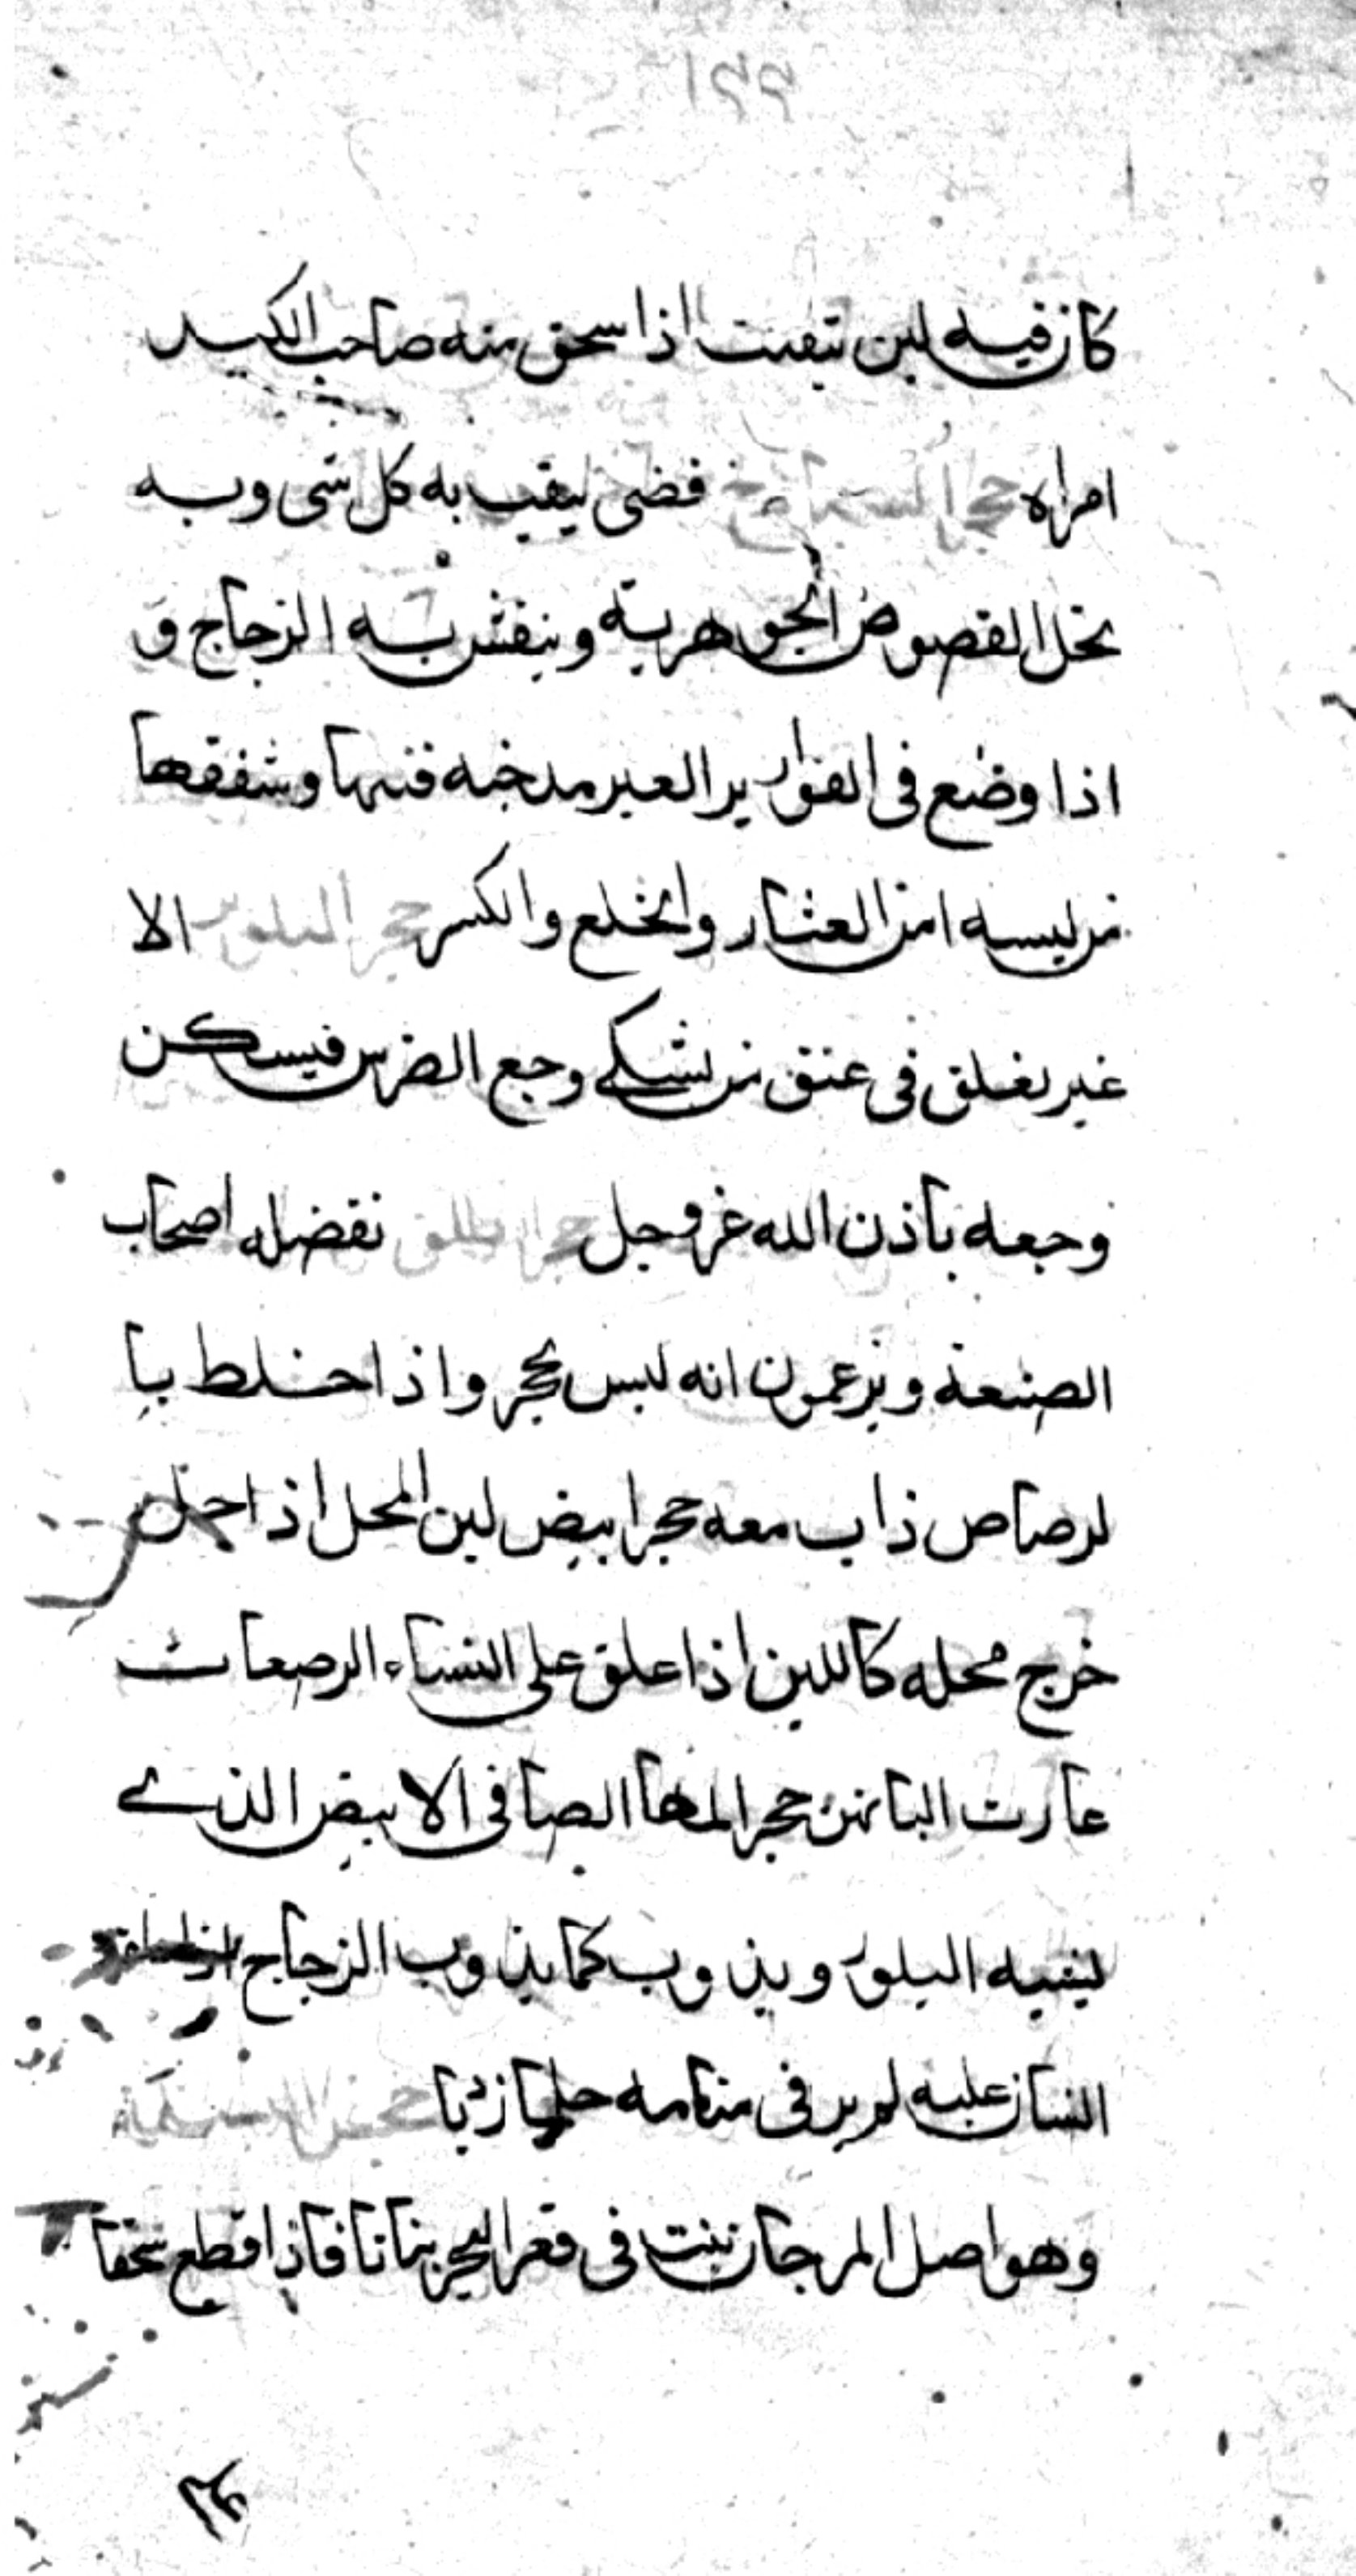 كان فيه لبن تبقت اذا سحق منه صاحب الكبد
امراه حجر السنباذج فضى ليقب به كل شى وبه
نحل القصوص الجوهرية وينقش به الزجاج و
اذا وضع فى القوارير العبر مدخنه فتها وشفقها
من لبسه امن العثار والخلع والكسر حجر البلور الا
غبر يغلق فى عنق من يشكى وجع الضرس فيسكن
وجعه باذن الله عز وجل حجر الطلق نفضله اصحاب
الصنعة ويزعمون انه ليس بحجر واذا اختلط با
لرصاص ذاب معه حجر ابيض لبن المحل اذا حل
خرج محله كاللبن اذا علق على النساء الرصعات
عارت البانهن حجر المها الصافى الابيض الذى
يشبه البلور ويذوب كما يذوب الزجاج اذا
انسان علبه لم ير فى منامه حلما زديا حجر
وهو اصل المرجان ينبت فى قعر البحر بناتا فاذا قطع